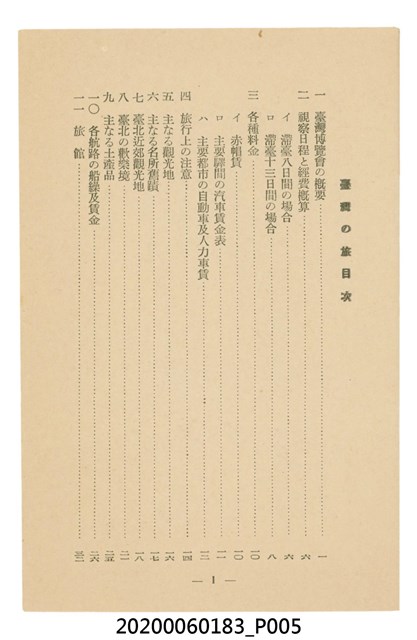 臺灣の旅目次
一 臺灣博覽會の概要………一
二 視察日程と經費概算………六
イ 滯臺八日間の場合………六
ロ 滯臺十三日間の場合………八
三 各種料金………一〇
イ 赤帽賃………一〇
ロ 主要驛間の汽車賃金表………一一
ハ 主要都市の自動車及人力車賃………一二
四 旅行上の注意………一四
五 主なる觀光地………一六
六 主なる名所舊蹟………一七
七 臺北近郊觀光地………一八
八 臺北の歡樂境………二一
九 主なる土產品………二五
一〇 各航路の船繰及賃金………二六
一一 旅館………三二
— 1 —
20200060183_P005